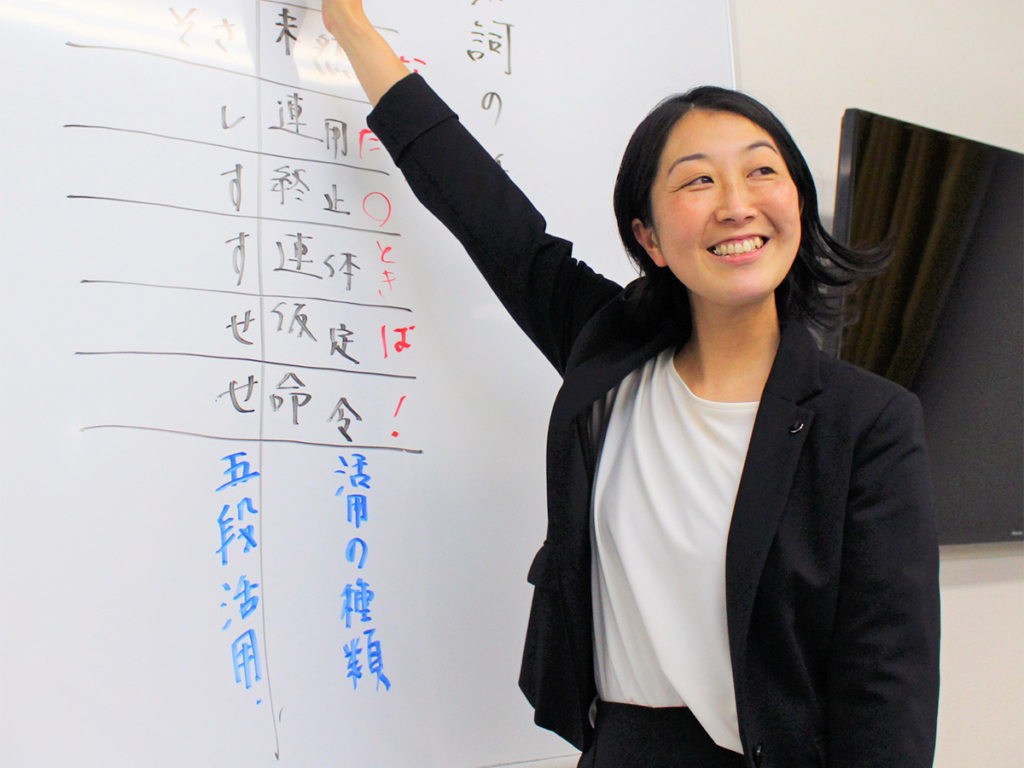 詞の
そ さ 未然
し 連用 た
す 終止 ○
す 連体 とき
せ 仮定 ば
せ 命令 !
活用の種類
五段活用.